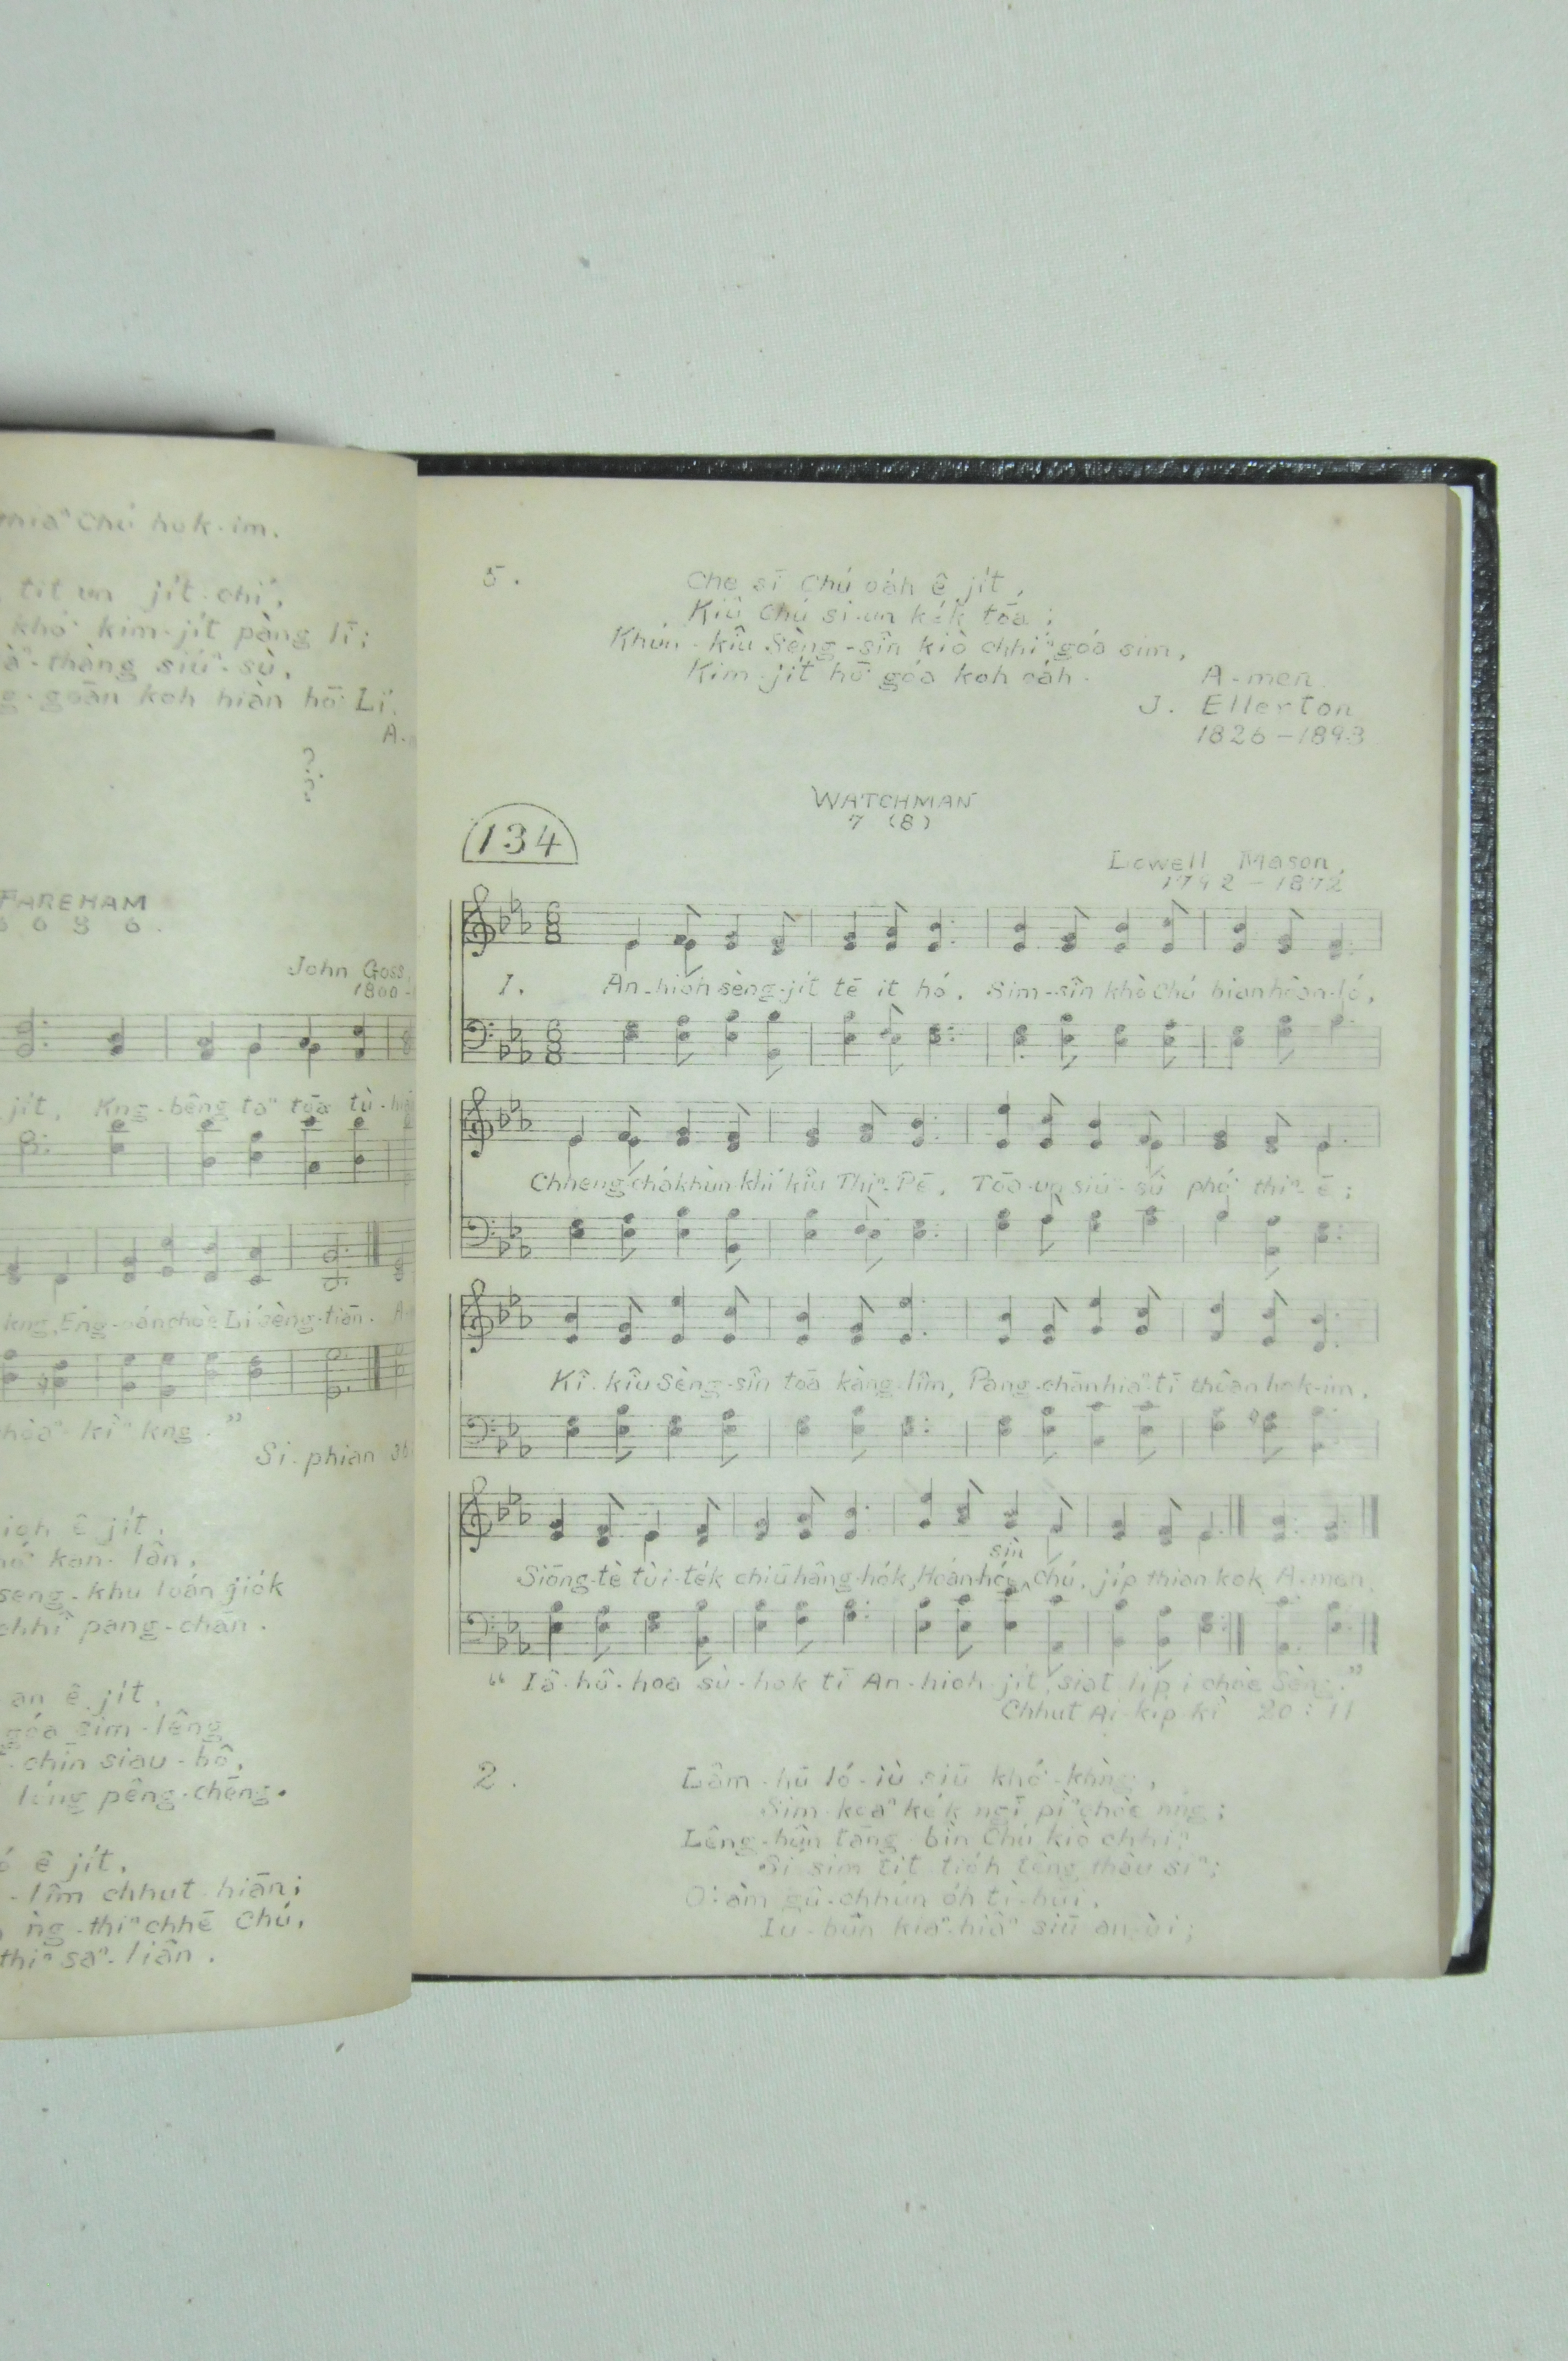 Chú hok-im.
tit un jit-chí,
khó͘ kim-jít pàng lī;
thàng siúⁿ-sù,
koh hiàn hō͘ Lí.
A-
?
?
FAREHAM
John Goss
1800-
jít, Kng-bêng taⁿ tōa
kng, Èng-oán chòe Lí sèng-tiān. A-
kiⁿ kng."
Si-phian
ê jít,
kan-lân,
seng-khu loán jiók
pang-chān.
an ê jít,
góa sim-lêng
chīn siau-hô,
lóng pêng-chēng.
ê jít,
-lîm chhut-hiān;
ǹg-thiⁿ chhē Chú,
thiⁿ saⁿ-liân.
5.
Che sī Chú oáh ê jít,
Kiû Chú si-un kék tōa;
Khún-kîu Sèng-sîn kiò chhíⁿ góa sim,
Kim-jít hō͘ góa koh oáh.
A-men.
J. Ellerton
1826-1893
WATCHMAN
7 (8)
134
Lowell Mason,
1792-1872
1. An-hioh sèng-jít tē it hó, Sim-sîn khò Chú hian hèan-ló,
Chheng-chá khùn-khí kîu Thiⁿ-Pē, Tōa-un siúⁿ-sù phó͘ thiⁿ-ē;
Kî-kîu Sèng-sîn tōa kàng-lîm, Pang-chān hiaⁿ-tī thôan hok-im,
sìn
Siōng-tè tùi-ték chiū hâng-hók, Hoán-hóe^Chú, jip thian kok A-men,
"Iâ-hô-hoa sù-hok tī An-hioh-jít, siat lip i chòe Sèng."
Chhut Ai-kip-kì 20:11
2.
Lâm-hū ló-iù siū khó͘-khǹg,
Sim-koaⁿ kék ngī pìⁿ chòe nńg;
Lêng-hûn tāng bīn Chú kiò chhíⁿ
Sí sim tit tióh têng thâu siⁿ;
O͘-àm gû-chhún óh tì-hūi,
Iu-būn kiaⁿ-hiâⁿ siū an-ùi;